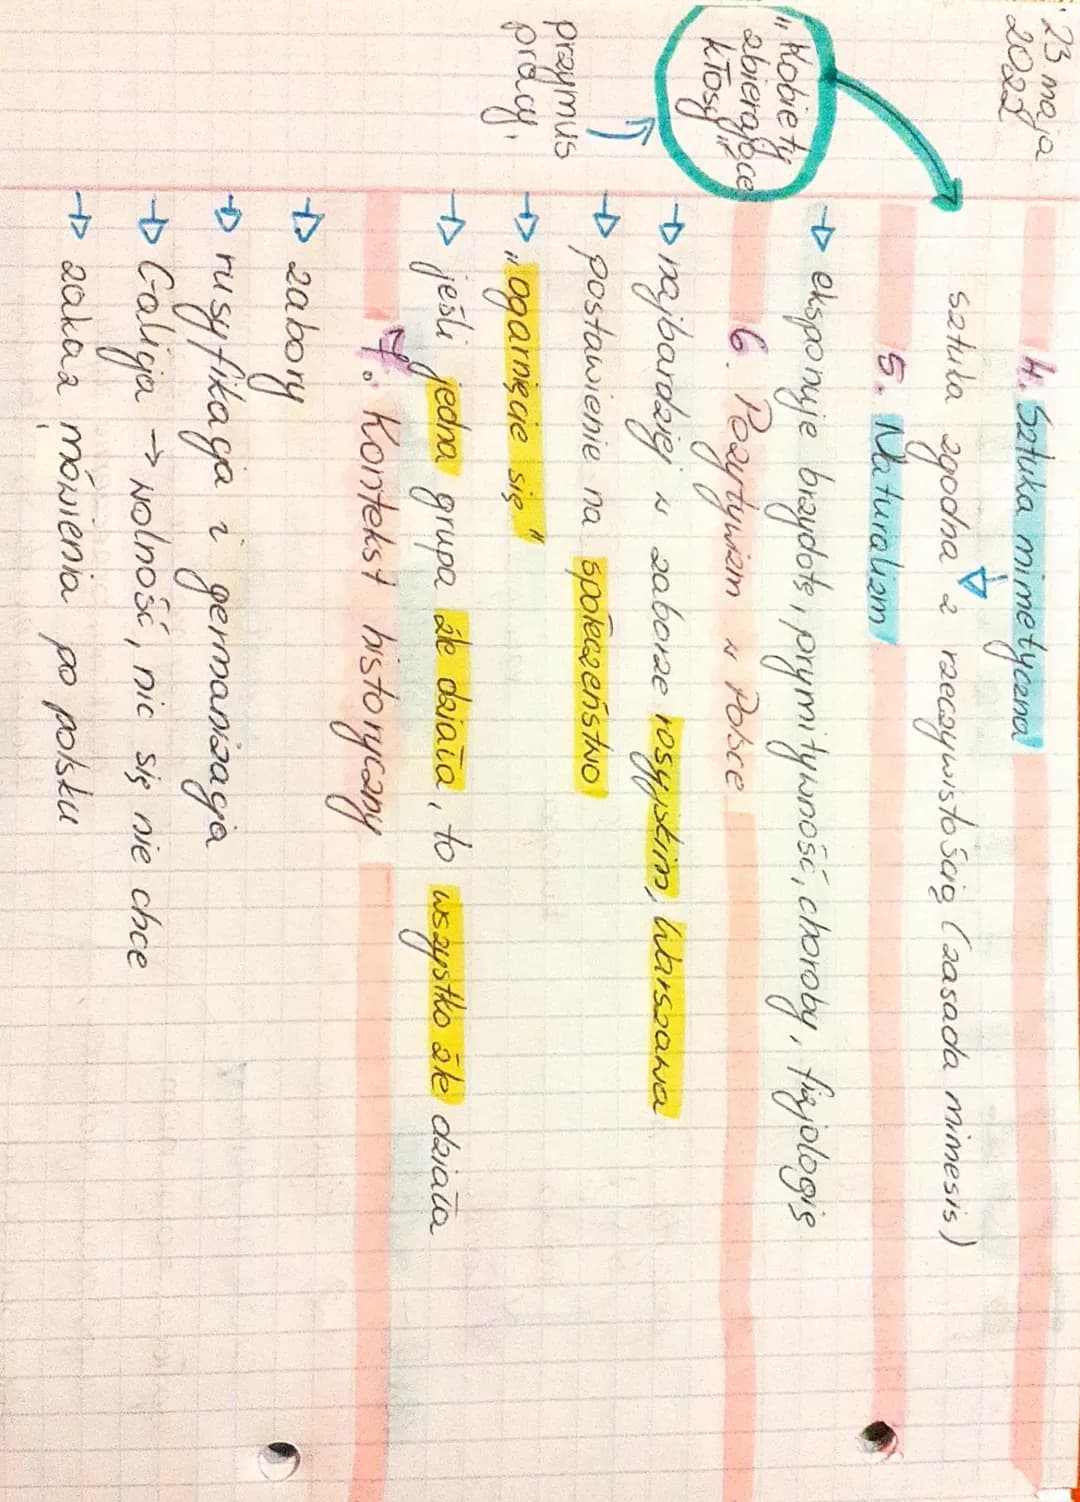 23 maja
2022
4. Sztuka mimetyczna
sztuka zgodna z rzeczywistością (zasada mimesis)
5. Naturalizm
"Kobiety
zbierające
kłosy"
→ eksponuje brzydotę, prymitywność, choroby, fizjologię
6. Pozytywizm w Polsce
→ najbardziej w zaborze rosyjskim, Warszawa
przymus
pracy,
→ postawienie na społeczeństwo
→ "ogarnięcie się"
→ jeśli jedna grupa źle działa, to wszystko źle działa
7. Kontekst historyczny
→ zabory
→ rusyfikacja i germanizacja
→ Galicja → wolność, nic się nie chce
→ zakaz mówienia po polsku